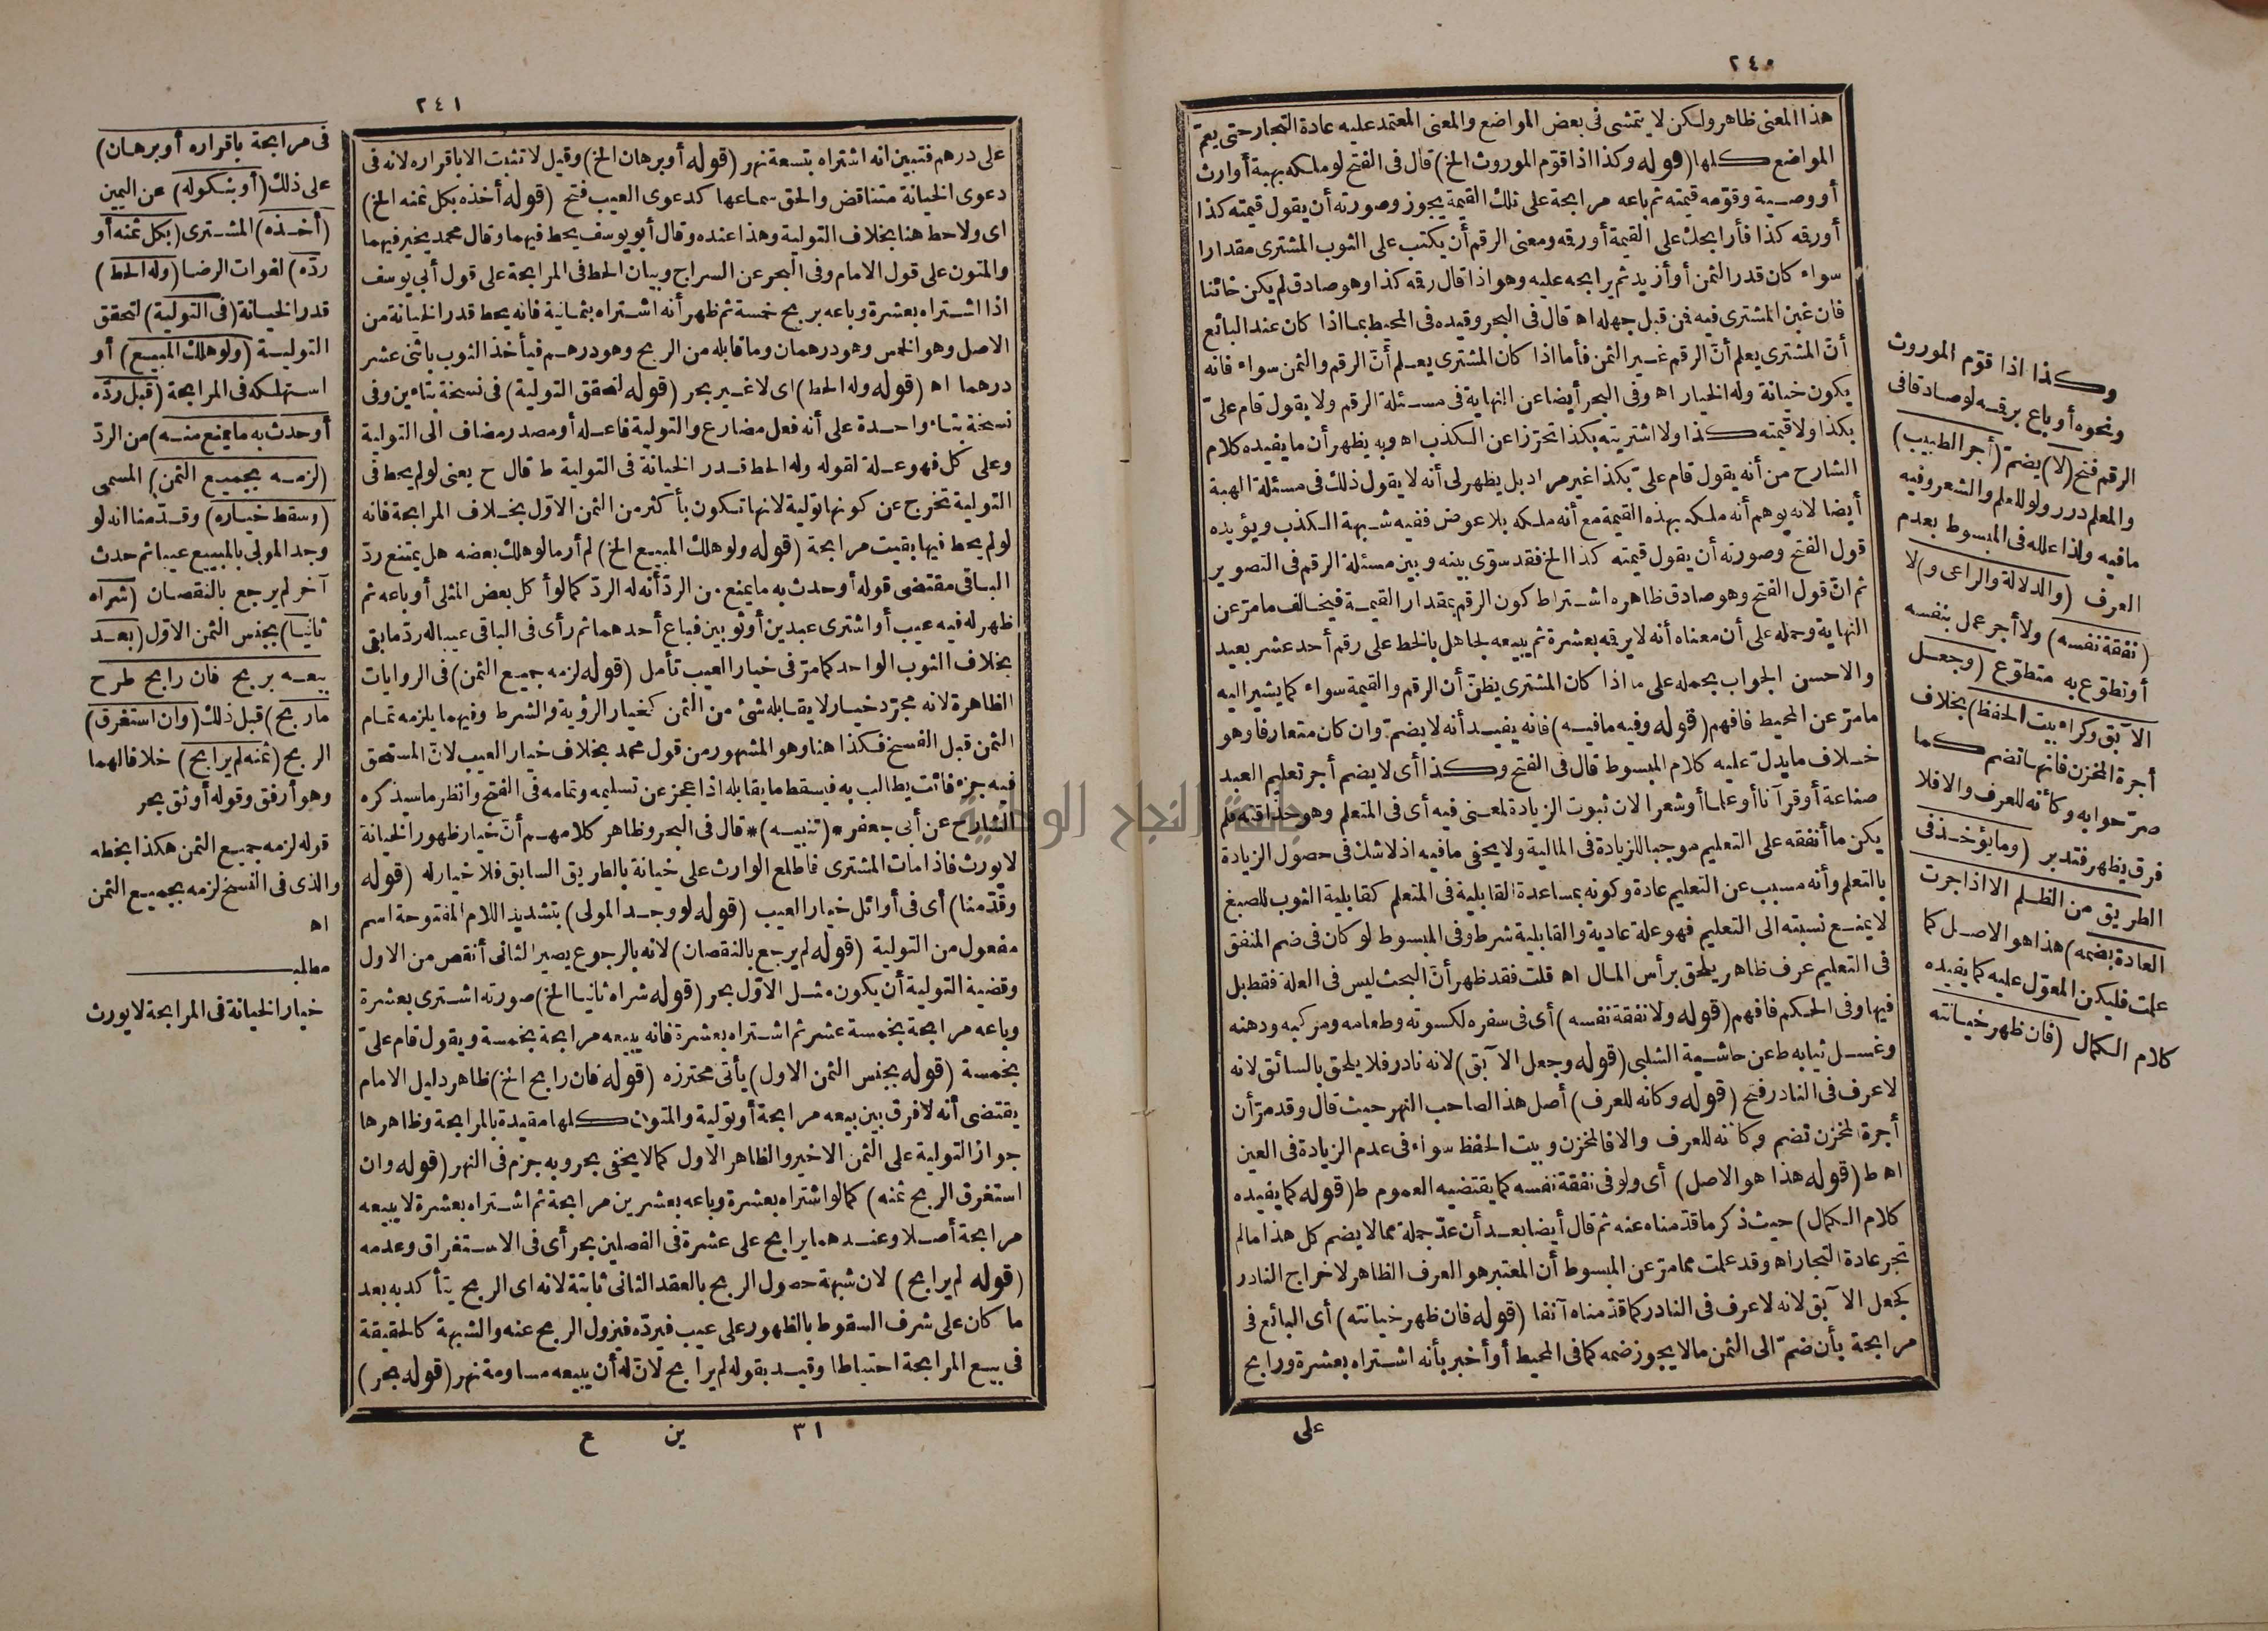 ٢٤٠
هذا المعنى ظاهر ولكن لا يتمشى فى بعض المواضع والمعنى المعتمد عليه عادة التجار حتى يعمّ
المواضع كلها (قوله وكذا اذا قوّم الموروث الخ) قال فى الفتح لو ملكه بهبة أو ارث
أو وصية وقوّمه قيمته ثم باعه مرابحة على تلك القيمة يجوز وصورته أن يقول قيمته كذا
أو رقمه كذا فأرابحك على القيمة أو رقمه ومعنى الرقم أن يكتب على الثوب المشترى مقدارا
سواء كان قدر الثمن أو أزيد ثم يرابحه عليه وهو اذا قال رقمه كذا وهو صادق لم يكن خائنا
فان غبن المشترى فيه فمن قبل جهله اه قال فى البحر وقيده فى المحيط بما اذا كان عند البائع
أنّ المشترى يعلم أنّ الرقم غير الثمن فأما اذا كان المشترى يعلم أنّ الرقم والثمن سواء فانه
يكون خيانة وله الخيار اه وفى البحر أيضا عن النهاية فى مسئلة الرقم ولا يقول قام علىّ
بكذا ولا قيمته كذا ولا اشتريته بكذا تحرّزا عن الكذب اه وبه يظهر أن ما يفيده كلام
الشارح من أنه يقول قام علىّ بكذا غير مراد بل يظهر لى أنه لا يقول ذلك فى مسئلة الهبة
أيضا لانه يوهم أنه ملكه بهذه القيمة مع أنه ملكه بلا عوض ففيه شبهة الكذب ويؤيده
قول الفتح وصورته أن يقول قيمته كذا الخ فقد سوّى بينه وبين مسئلة الرقم فى التصوير
ثم انّ قول الفتح وهو صادق ظاهره اشتراط كون الرقم بمقدار القيمة فيخالف ما مرّ عن
النهاية وحمله على أن معناه أنه لا يرقمه بعشرة ثم يبيعه لجاهل بالخط على رقم أحد عشر بعيد
والاحسن الجواب بحمله على ما اذا كان المشترى يظنّ أن الرقم والقيمة سواء كما يشير اليه
ما مرّ عن المحيط فافهم (قوله وفيه ما فيه) فانه يفيد أنه لا يضمّ وان كان متعارفا وهو
خلاف ما يدلّ عليه كلام المبسوط قال فى الفتح وكذا أى لا يضم أجر تعليم العبد
صناعة أو قرآنا أو علما أو شعرا لان ثبوت الزيادة لمعنى فيه أى فى المتعلم وهو حذاقته فلم
يكن ما أنفقه على التعليم موجبا للزيادة فى المالية ولا يخفى ما فيه اذ لا شك فى حصول الزيادة
بالتعلم وأنه مسبب عن التعليم عادة وكونه بمساعدة القابلية فى المتعلم كقابلية الثوب للصبغ
لا يمنع نسبته الى التعليم فهو علة عادية والقابلية شرط وفى المبسوط لو كان فى ضم المنفق
فى التعليم عرف ظاهر يلحق برأس المال اه قلت فقد ظهر أنّ البحث ليس فى العلة فقط بل
فيها وفى الحكم فافهم (قوله ولا نفقة نفسه) أى فى سفره لكسوته وطعامه ومركبه ودهنه
وغسل ثيابه ط عن حاشية الشلبى (قوله وجعل الآبق) لانه نادر فلا يلحق بالسائق لانه
لا عرف فى النادر فتح (قوله وكانه للعرف) أصل هذا لصاحب النهر حيث قال وقد مرّ أن
أجرة المخزن تضم وكأنه للعرف والا فالمخزن وبيت الحفظ سواء فى عدم الزيادة فى العين
اه ط (قوله هذا هو الاصل) أى ولو فى نفقة نفسه كما يقتضيه العموم ط (قوله كما يفيده
كلام الكمال) حيث ذكر ما قدّمناه عنه ثم قال أيضا بعد أن عدّ جملة مما لا يضم كل هذا ما لم
تجر عادة التجار اه وقد علمت مما مرّ عن المبسوط أن المعتبر هو العرف الظاهر لاخراج النادر
كجعل الآبق لانه لا عرف فى النادر كما قدّمناه آنفا (قوله فان ظهر خيانته) أى البائع فى
مرابحة بأن ضمّ الى الثمن ما لا يجوز ضمه كما فى المحيط أو أخبر بأنه اشتراه بعشرة ورابح
على
وكذا اذا قوّم الموروث
ونحوه أو باع برقمه لو صادقا فى
الرقم فتح (لا) يضم (أجر الطبيب)
والمعلم درر ولو للعلم والشعر وفيه
ما فيه ولذا علله فى المبسوط بعدم
العرف (والدلالة والراعى و) لا
(نفقة نفسه) ولا أجر عمل بنفسه
أو تطوّع به متطوّع (وجعل
الآبق وكراء بيت الحفظ) بخلاف
أجرة المخزن فانها تضم كما
صرّحوا به وكأنه للعرف والا فلا
فرق يظهر فتدبر (وما يؤخذ فى
الطريق من الظلم الا اذا جرت
العادة بضمه) هذا هو الاصل كما
علمت فليكن المعوّل عليه كما يفيده
كلام الكمال (فان ظهر خيانته
٢٤١
على درهم فتبين انه اشتراه بتسعة نهر (قوله أو برهان الخ) وقيل لا تثبت الا باقراره لانه فى
دعوى الخيانة متناقض والحق سماعها كدعوى العيب فتح (قوله أخذه بكل ثمنه الخ)
اى ولا حط هنا بخلاف التولية وهذا عنده وقال أبو يوسف يحط فيهما وقال محمد يخير فيهما
والمتون على قول الامام وفى البحر عن السراج وبيان الحط فى المرابحة على قول أبي يوسف
اذا اشتراه بعشرة وباعه بربح خمسة ثم ظهر أنه اشتراه بثمانية فانه يحط قدر الخيانة من
الاصل وهو الخمس وهو درهمان وما قابله من الربح وهو درهم فيأخذ الثوب باثنى عشر
درهما اه (قوله وله الحط) اى لا غير بحر (قوله لتحقق التولية) فى نسخة بتاءين وفى
نسخة بتاء واحدة على أنه فعل مضارع والتولية فاعله أو مصدر مضاف الى التولية
وعلى كل فهو علة لقوله وله الحط قدر الخيانة فى التولية ط قال ح يعنى لو لم يحط فى
التولية تخرج عن كونها تولية لانها تكون بأكثر من الثمن الاوّل بخلاف المرابحة فانه
لو لم يحط فيها بقيت مرابحة (قوله ولو هلك المبيع الخ) لم أر ما لو هلك بعضه هل يمتنع ردّ
الباقى مقتضى قوله أو حدث به ما يمنع من الردّ أنه له الردّ كما لو أكل بعض المثلى أو باعه ثم
ظهر له فيه عيب أو اشترى عبدين أو ثوبين فباع أحدهما ثم رأى فى الباقى عيبا له ردّ ما بقى
بخلاف الثوب الواحد كما مرّ فى خيار العيب تأمل (قوله لزمه جميع الثمن) فى الروايات
الظاهرة لانه مجرّد خيار لا يقابله شئ من الثمن كخيار الرؤية والشرط وفيهما يلزمه تمام
الثمن قبل الفسخ فكذا هنا وهو المشهور من قول محمد بخلاف خيار العيب لانّ المستحق
فيه جزء فائت يطالب به فيسقط ما يقابله اذا عجز عن تسليمه وتمامه فى الفتح وانظر ما سيذكره
الشارح عن أبى جعفر *(تنبيه)* قال فى البحر وظاهر كلامهم أنّ خيار ظهور الخيانة
لا يورث فاذا مات المشترى فاطلع الوارث على خيانة بالطريق السابق فلا خيار له (قوله
وقدّمنا) أى فى أوائل خيار العيب (قوله لو وجد المولى) بتشديد اللام المفتوحة اسم
مفعول من التولية (قوله لم يرجع بالنقصان) لانه بالرجوع يصير الثانى أنقص من الاول
وقضية التولية أن يكون مثل الاوّل بحر (قوله شراه ثانيا الخ) صورته اشترى بعشرة
وباعه مرابحة بخمسة عشر ثم اشتراه بعشرة فانه يبيعه مرابحة بخمسة ويقول قام علىّ
بخمسة (قوله بجنس الثمن الاول) يأتى محترزه (قوله فان رابح الخ) ظاهر دليل الامام
يقتضى أنه لا فرق بين بيعه مرابحة أو تولية والمتون كلها مقيدة بالمرابحة وظاهرها
جواز التولية على الثمن الاخير والظاهر الاول كما لا يخفى بحر وبه جزم فى النهر (قوله وان
استغرق الربح ثمنه) كما لو اشتراه بعشرة وباعه بعشرين مرابحة ثم اشتراه بعشرة لا يبيعه
مرابحة أصلا وعندهما يرابح على عشرة فى الفصلين بحر أى فى الاستغراق وعدمه
(قوله لم يرابح) لان شبهة حصول الربح بالعقد الثانى ثابتة لانه اى الربح يتأكد به بعد
ما كان على شرف السقوط بالظهور على عيب فيردّه فيزول الربح عنه والشبهة كالحقيقة
فى بيع المرابحة احتياطا وقيد بقوله لم يرابح لانّ له أن يبيعه مساومة نهر (قوله بحر)
٣١ ين ع
فى مرابحة باقراره أو برهان)
على ذلك (أو بنكوله) عن اليمين
(أخذه) المشترى (بكل ثمنه أو
ردّه) لفوات الرضا (وله الحط)
قدر الخيانة (فى التولية) لتحقق
التولية (ولو هلك المبيع) أو
استهلكه فى المرابحة (قبل ردّه
أو حدث به ما يمنع منه) من الردّ
(لزمه بجميع الثمن) المسمى
(وسقط خياره) وقدّمنا انه لو
وجد المولى بالمبيع عيبا ثم حدث
آخر لم يرجع بالنقصان (شراه
ثانيا) بجنس الثمن الاوّل (بعد
بيعه بربح فان رابح طرح
ما ربح) قبل ذلك (وان استغرق)
الربح (ثمنه لم يرابح) خلافا لهما
وهو أرفق وقوله أوثق بحر
قوله لزمه جميع الثمن هكذا بخطه
والذى فى النسخ لزمه بجميع الثمن
اه
مطلب
خيار الخيانة فى المرابحة لا يورث
جامعة النجاح الوطنية